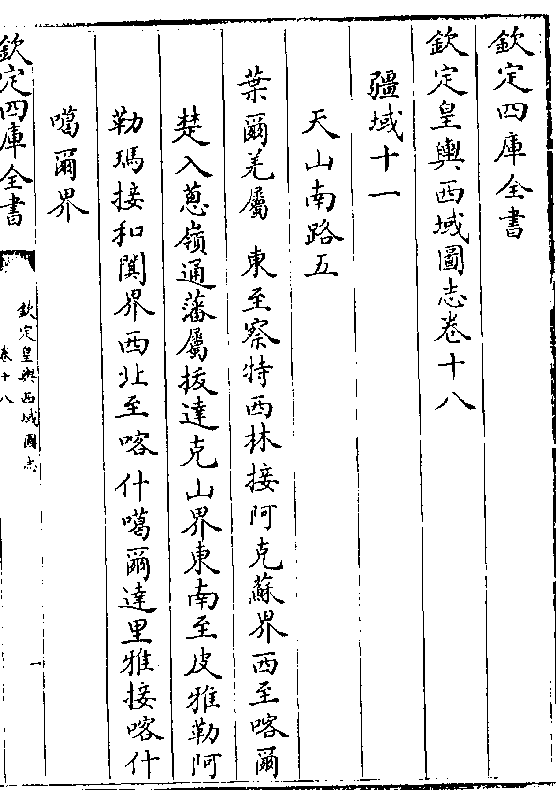 欽定四庫全書
欽定皇輿西域圖志卷十八
疆域十一
天山南路五
葉爾羌屬　東至察特西林接阿克蘇界西至喀爾
楚入蔥嶺通藩屬拔達克山界東南至皮雅勒阿
勒瑪接和闐界西北至喀什噶爾達里雅接喀什
噶爾界
欽定四庫全書
欽定皇輿西域圖志
卷十八
一